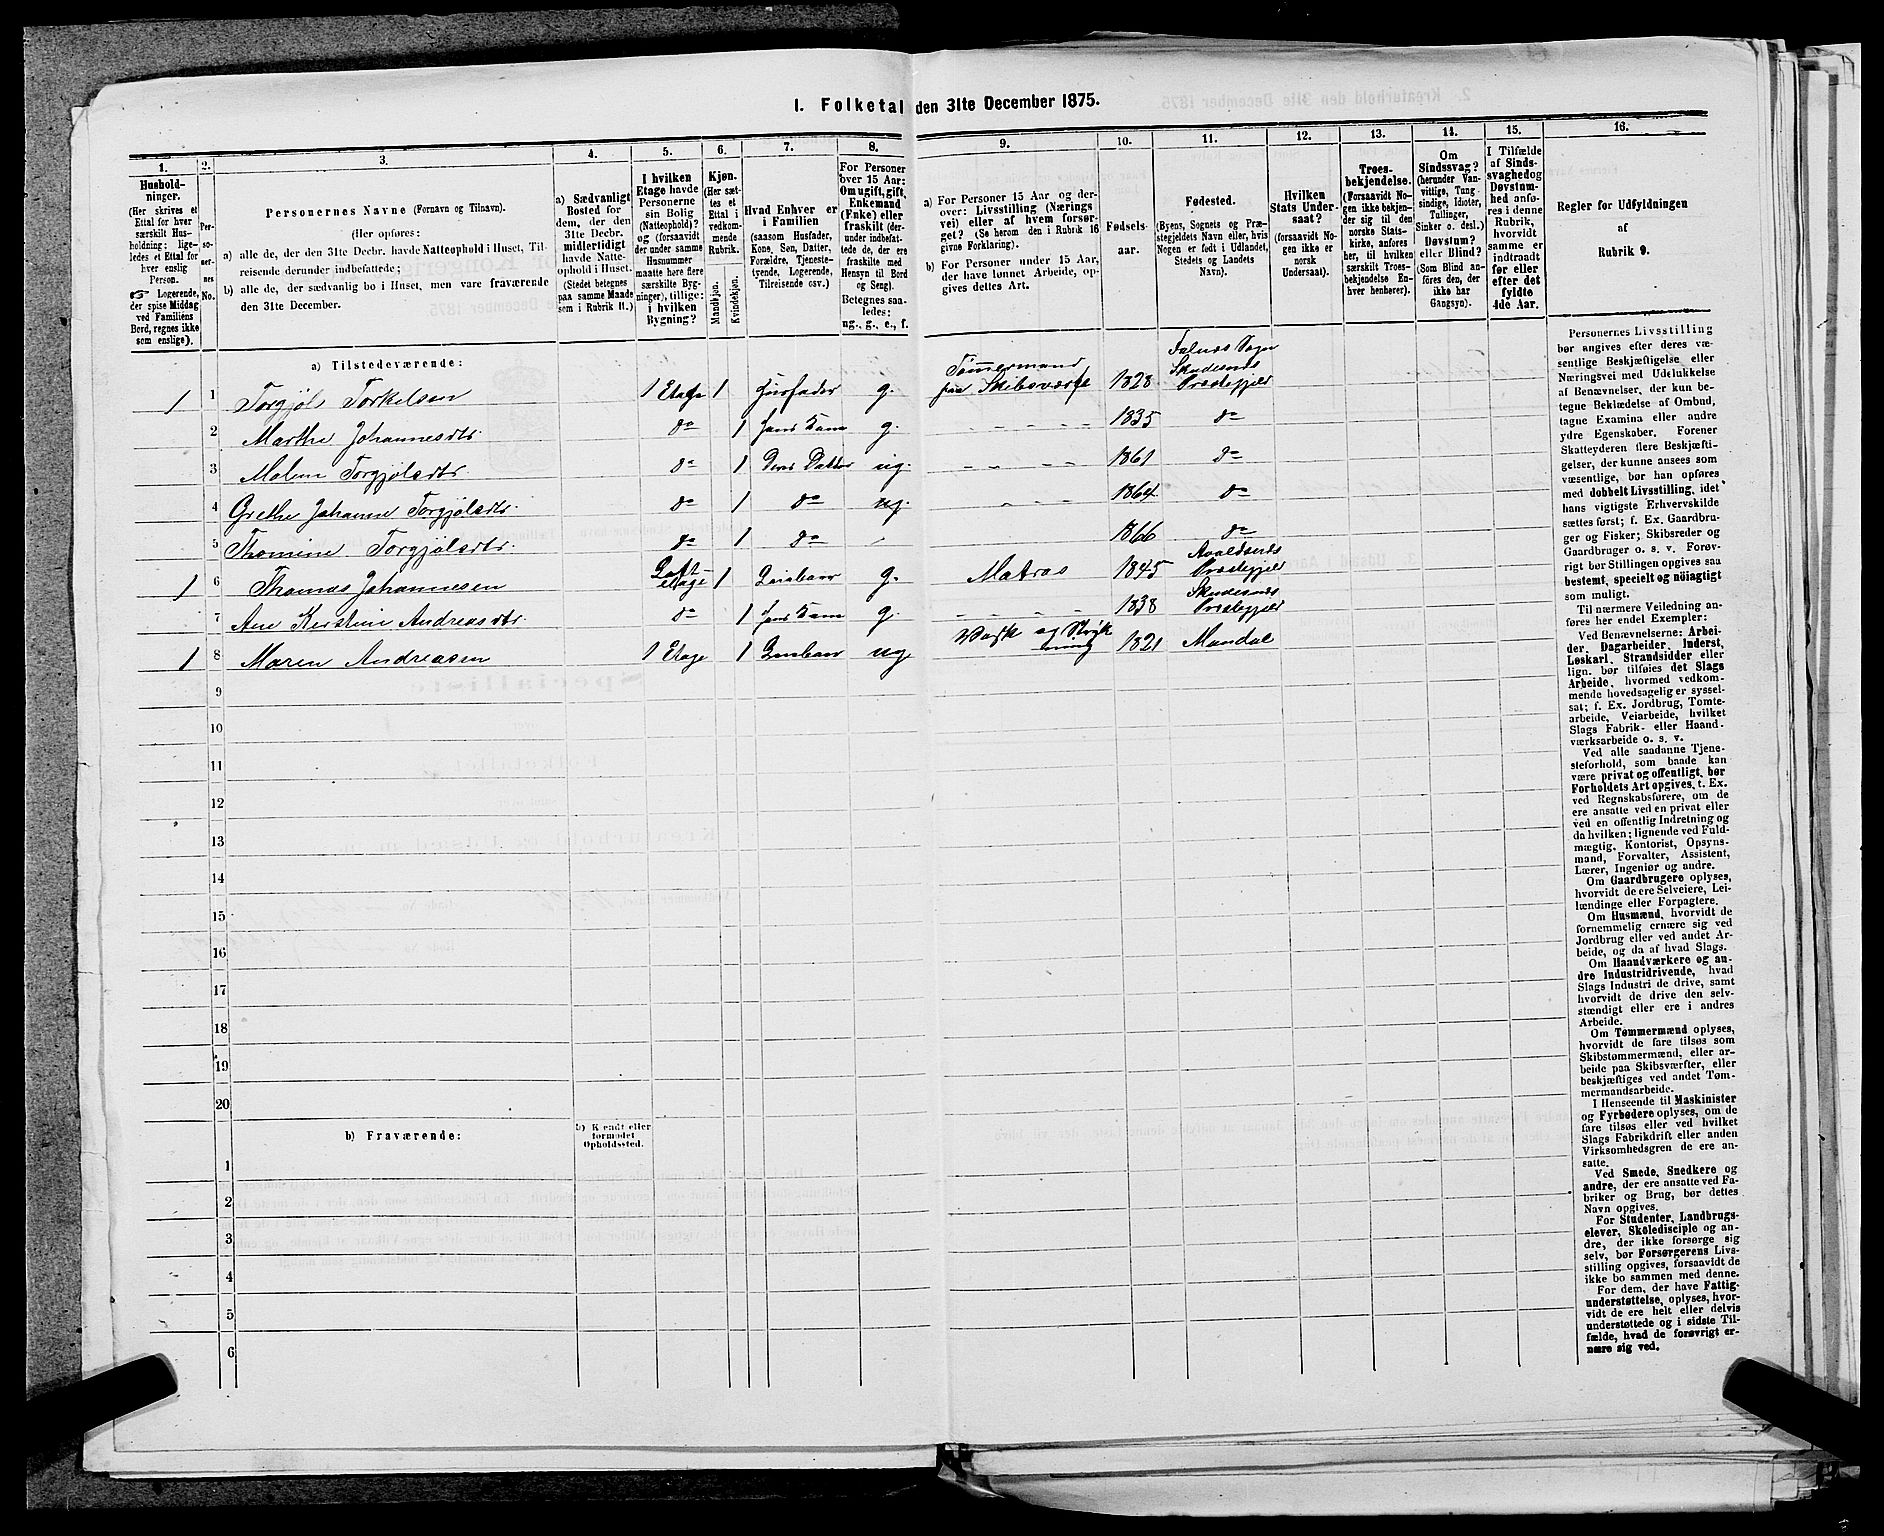 1. Folketal den 31te December 1875.
1. 2. 3. 4. 5. 6. 7. 8. 9. 10. 11. 12. 13. 14. 15. 16.
Hushold-
ninger.
(Her skrives et
Ettal for hver
særskilt Hus-
holdning; lige-
ledes et Ettal for
hver enslig
Person.
Logerende,
der spise Middag
ved Familiens
Bord, regnes ikke
som enslige).
Per-
so-
ner-
nes
No.
Personernes Navne (Fornavn og Tilnavn).
(Her opføres:
a) alle de, der den 31te Decbr. havde Natteophold i Huset, Til-
reisende derunder indbefattede;
b) alle de, der sædvanlig bo i Huset, men vare fraværende
den 31te December.
a) Sædvanligt
Bosted for
dem, der den
31te Decbr.
midlertidigt
havde Natte-
ophold i Huset.
(Stedet betegnes
paa samme Maade
som i Rubrik 11.)
I hvilken
Etage havde
Personerne
sin Bolig
(Natteophold)?
og (forsaavidt
der under samme
Husnummer
maatte høre flere
særskilte Byg-
ninger), tillige:
i hvilken
Bygning?
Kjøn.
(Her sæt-
tes et
Ettal i
vedkom-
mende
Rubrik.
Mandkjøn.
Kvindekjøn.
Hvad Enhver er
i Familien
(saasom Husfader,
Kone, Søn, Datter,
Forældre, Tjeneste-
tyende, Logerende,
Tilreisende osv.)
For Personer
over 15 Aar:
Om ugift, gift,
Enkemand
(Enke) eller
fraskilt (der-
under indbefat-
tede de, der ere
fraskilte med
Hensyn til Bord
og Seng).
Betegnes saa-
ledes:
ug., g., e., f.
a) For Personer 15 Aar og der-
over: Livsstilling (Nærings
vei) eller af hvem forsør-
get? (Se herom den i Rubrik 16
givne Forklaring).
b) For Personer under 15 Aar,
der have lønnet Arbeide, op-
gives dettes Art.
Fødsels-
aar.
Fødested.
(Byens, Sognets og Præ-
stegjeldets Navn eller, hvis
Nogen er født i Udlandet,
Stedets og Landets
Navn).
Hvilken
Stats Under-
saat?
(forsaavidt No-
gen ikke er
norsk
Undersaat).
Troes-
bekjendelse.
(Forsaavidt No-
gen ikke bekjen-
der sig til den
norske Stats-
kirke, anføres
her, til hvilken
særskilt Troes-
bekjendelse En-
hver henhører).
Om
Sindssvag?
(herunder Van-
vittige, Tung-
sindige, Idioter,
Tullinger,
Sinker o. desl.)
Døvstum?
eller Blind?
(Som Blind an-
føres den, der
ikke har
Gangsyn).
I Tilfælde
af Sinds-
svaghed og
Døvstum-
hed anfø-
res i denne
Rubrik,
hvorvidt
samme er
indtraadt
før eller
efter det
fyldte
4de Aar.
Regler for Udfyldningen
af
Rubrik 9.
a) Tilstedeværende:
1 1 Torgjøl Torkelsen 1 Etage 1 Husfader g. Tømmermand paa Skibsværft 1828 Falnes Sogn Skudesnes Præstegjeld
2 Marthe Johannesdtr. do 1 hans Kone g. - - - - 1835 do
3 Malene Torgjølsdtr do 1 Deres Datter ug. - - - - 1861 do
4 Grethe Johanne Torgjølsdtr. do 1 do ug. - - - 1864 do
5 Thomine Torgjølsdtr. do 1 do 1866 do
1 6 Thomas Johannesen Loft etage 1 g. Matros 1845 Avaldsnes Præstegjeld
7 Ane Kerstine Andreasdtr. do 1 hans Kone g. - - - - 1838 Skudesnes Præstegjeld
1 8 Maren Andreasen 1 Etage 1 ug Vask og Strykning 1821 Mandal
9
10
11
12
13
14
15
16
17
18
19
20
b) Fraværende:
b) Kjendt eller
formodet
Opholdssted.
1
2
3
4
5
6
Personernes Livsstilling
bør angives efter deres væ-
sentlige Beskjæftigelse eller
Næringsvei med Udelukkelse
af Benævnelser, der kun be-
tegne Beklædelse af Ombud,
tagne Examina eller andre
ydre Egenskaber. Forener
Skatteyderen flere Beskjæfti-
gelser, der kunne ansees som
væsentlige, bør han opføres
med dobbelt Livsstilling, idet
hans vigtigste Erhvervskilde
sættes først; f. Ex. Gaardbru-
ger og Fisker; Skibsreder og
Gaardbruger o. s. v. Forøv-
rigt bør Stillingen opgives saa
bestemt, specielt og nøiagtigt
som muligt.
Til nærmere Veiledning an-
føres her endel Exempler:
Ved Benævnelserne: Arbei-
der, Dagarbeider, Inderst,
Løskarl, Strandsidder eller
lign. bør tilføies det Slags
Arbeide, hvormed vedkom-
mende hovedsagelig er syssel-
sat; f. Ex. Jordbrug, Tomte-
arbeide, Veiarbeide, hvilket
Slags Fabrik- eller Haand-
værksarbeide o. s. v.
Ved alle saadanne Tjene-
steforhold, som baade kan
være privat og offentligt, bør
Forholdets Art opgives, t. Ex.
ved Regnskabsførere, om de
ere ansatte ved en privat eller
ved en offentlig Indretning og
da hvilken; lignende ved Fuld-
mægtig, Kontorist, Opsyns-
mand, Forvalter, Assistent,
Lærer, Ingeniør og andre.
Om Gaardbrugere oplyses,
hvorvidt de ere Selveiere, Lei-
lændinge eller Forpagtere.
Om Husmænd, hvorvidt de
fornemmelig ernære sig ved
Jordbrug eller ved andet Ar-
beide, og da af hvad Slags.
Om Haandværkere og an-
dre Industridrivende, hvad
Slags Industri de drive, samt
hvorvidt de drive den selv-
stændigt eller ere i andres
Arbeide.
Om Tømmermænd oplyses,
hvorvidt de fare tilsøs som
Skibstømmermænd, eller ar-
beide paa Skibsværfter, eller
beskjæftiges ved andet Tøm-
mermandsarbeide.
I Henseende til Maskinister
og Fyrbødere oplyses, om de
fare tilsøs eller ved hvilket
Slags Fabrikdrift eller anden
Virksomhedsgren de ere an-
satte.
Ved Smede, Snedkere og
andre, der ere ansatte ved Fa-
briker og Brug, bør dettes
Navn opgives.
For Studenter, Landbrugs-
elever, Skoledisciple og an-
dre, der ikke forsørge sig
selv, bør Forsørgerens Livs-
stilling opgives, forsaavidt de
ikke bo sammen med denne.
For dem, der have Fattig-
understøttelse, oplyses, hvor-
vidt de ere helt eller delvis
understøttede og i sidste Til-
fælde, hvad de forøvrigt er-
nære sig ved.